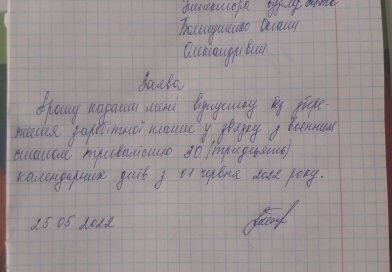 Пашущенко Оксани
Олександрівни
Заява
Прошу надати мені відпустку без збере-
ження заробітної плати у звязку з воєнним
станом тривалістю 30 (тридцять)
календарних днів з 01 червня 2022 року.
25 05 2022